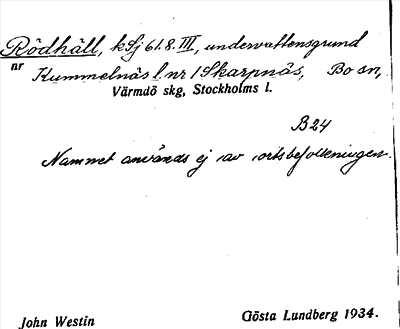 Rödhäll, k Sj 61.8. III, undervattensgrund
nr Kummelnäs l. nr 1 Skarpnäs, Bo sn,
Värmdö skg, Stockholms l.
B24
Namnet används ej av ortsbefolkningen.
John Westin
Gösta Lundberg 1934.